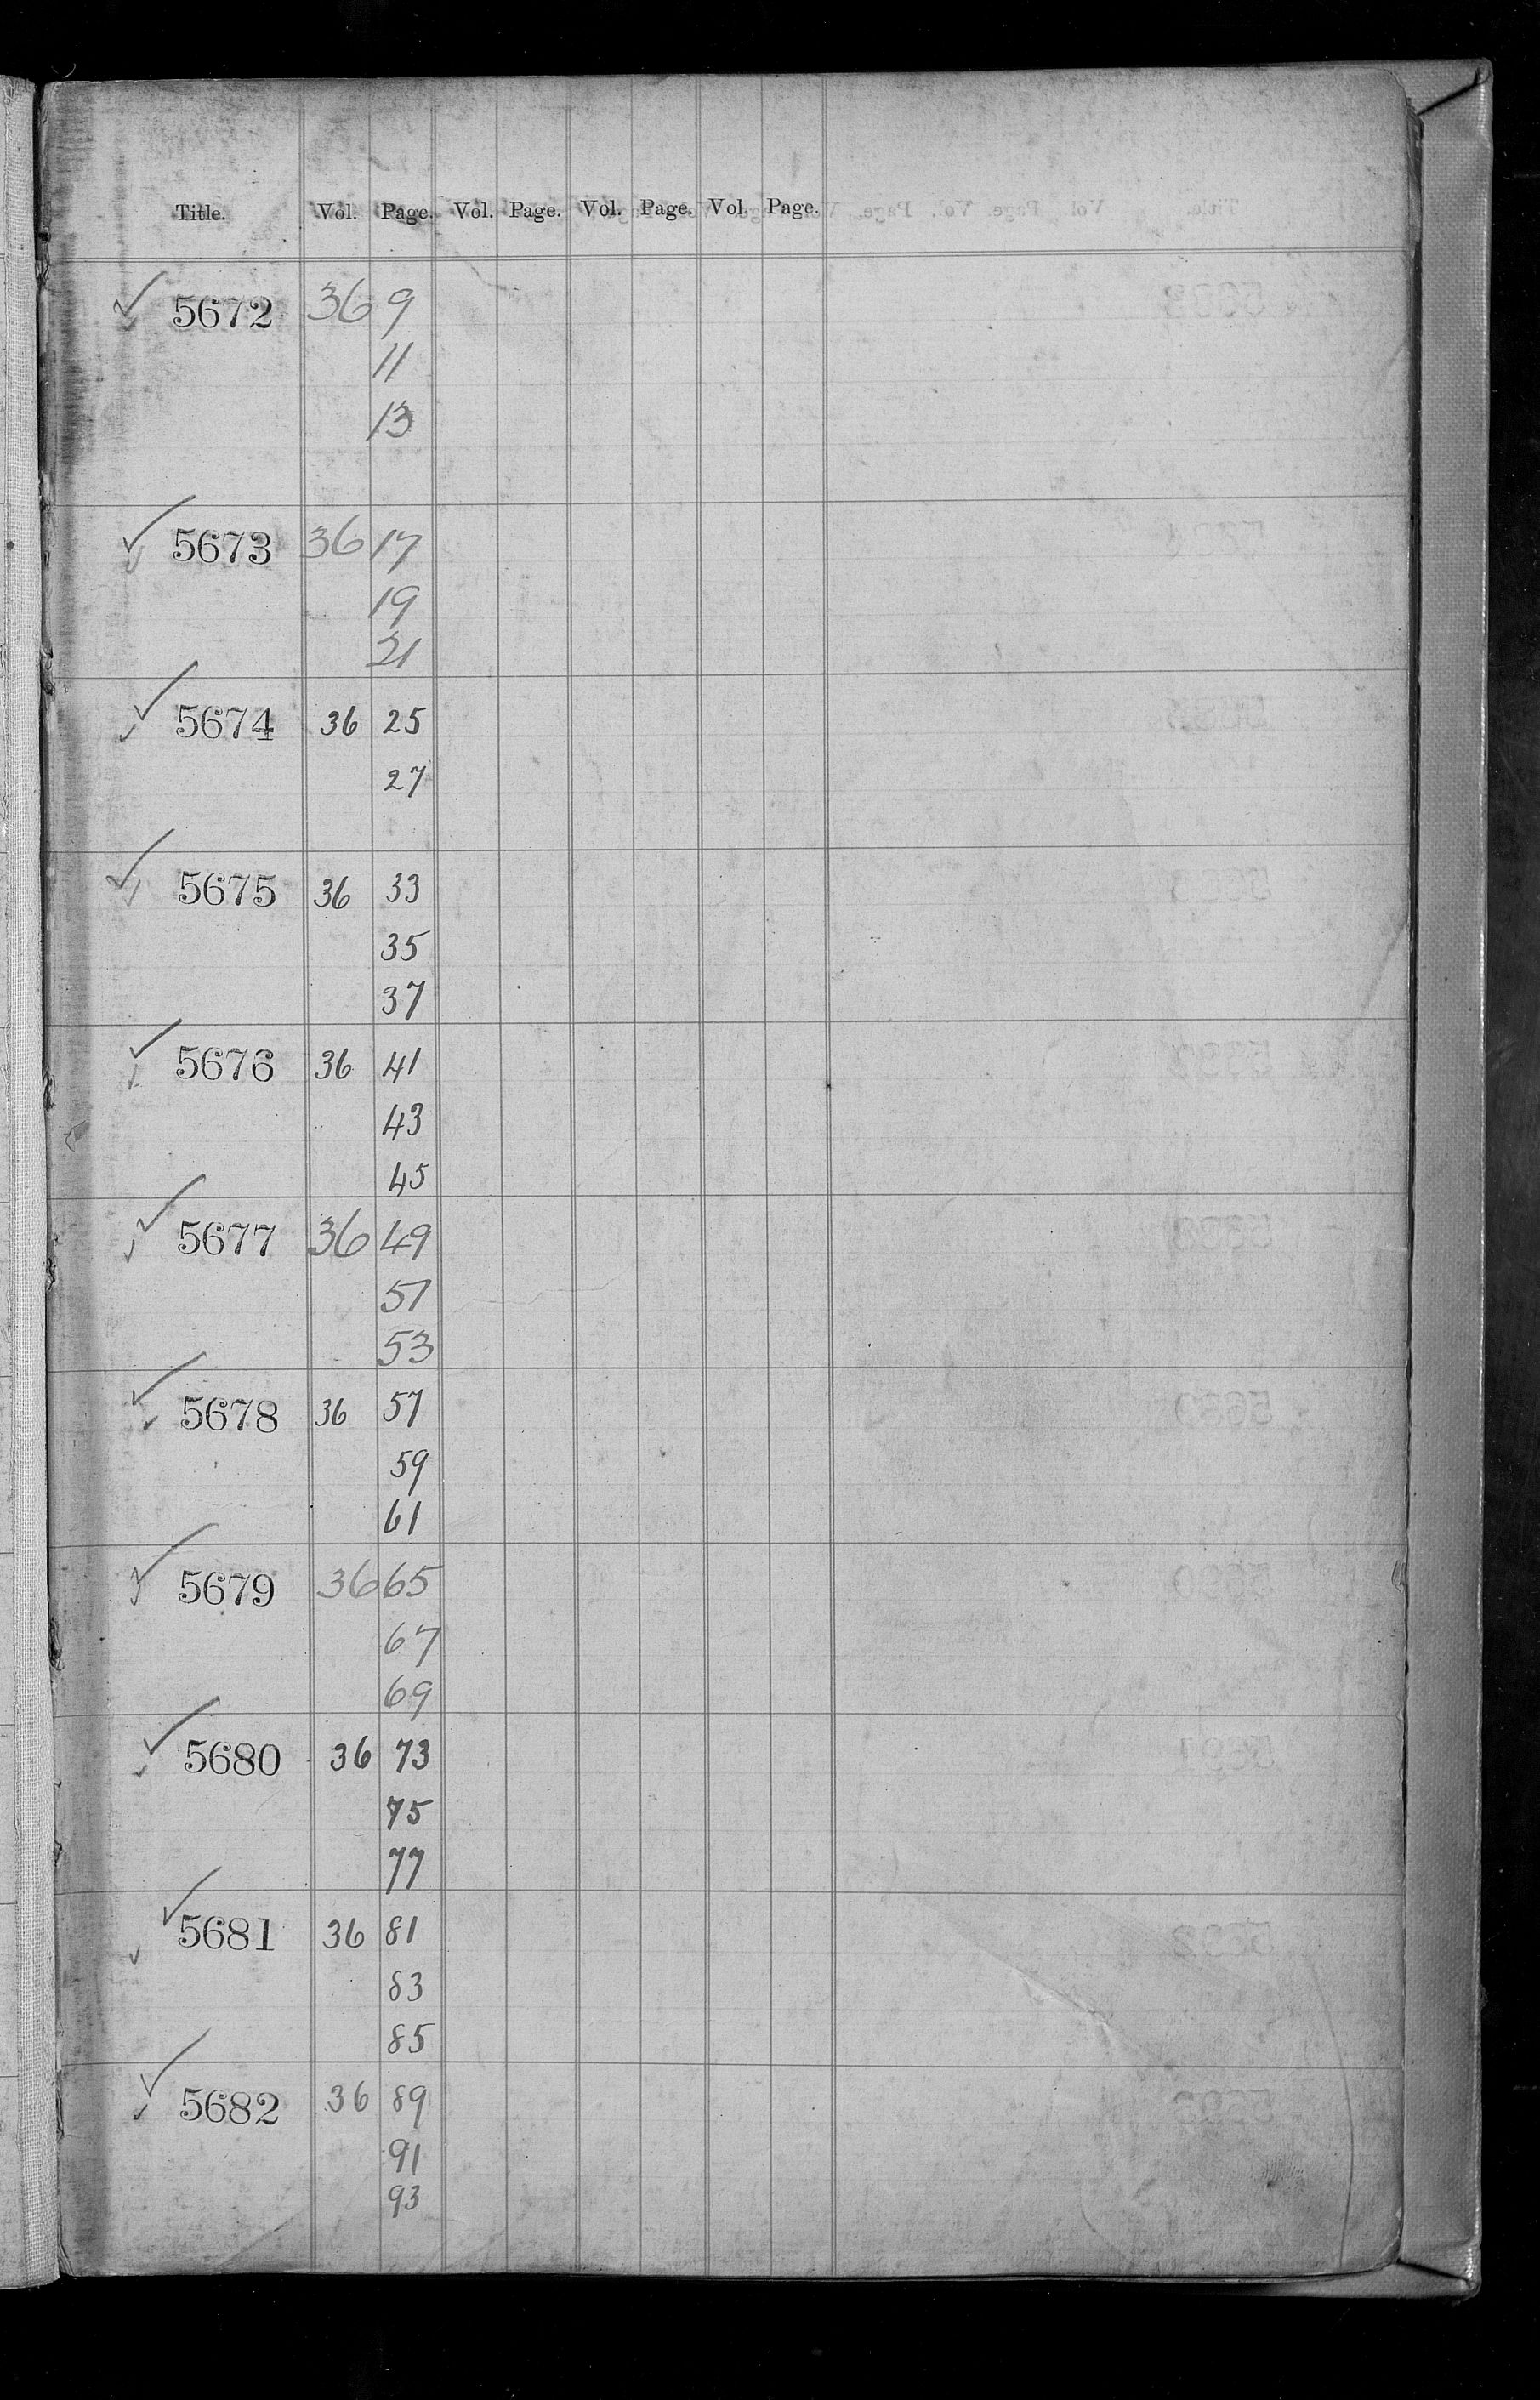 Title. Vol. Page. Vol. Page. Vol. Page. Vol. Page.
✓ 5672 36 9
11
13
✓ 5673 36 17
19
21
✓ 5674 36 25
27
✓ 5675 36 33
35
37
✓ 5676 36 41
43
45
✓ 5677 36 49
51
53
✓ 5678 36 57
59
61
✓ 5679 36 65
67
69
✓ 5680 36 73
75
77
✓ 5681 36 81
83
85
✓ 5682 36 89
91
93